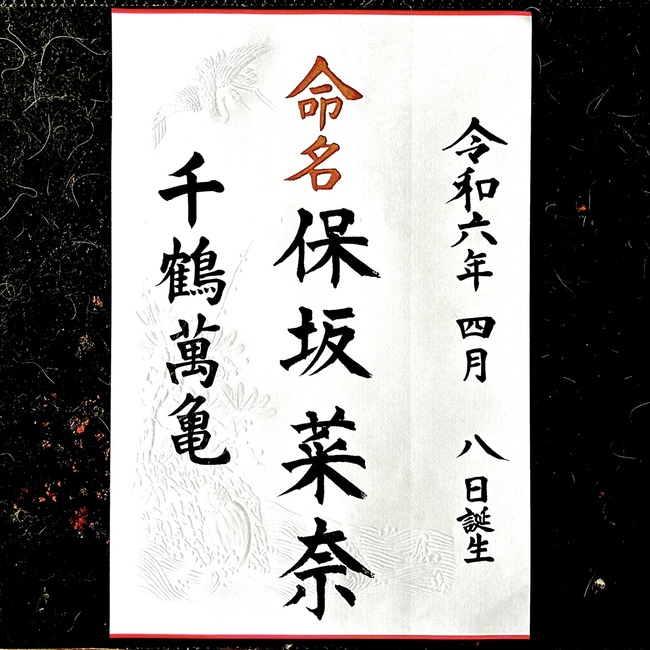 令和六年 四月 八日誕生
命名
保坂 菜奈
千鶴萬亀